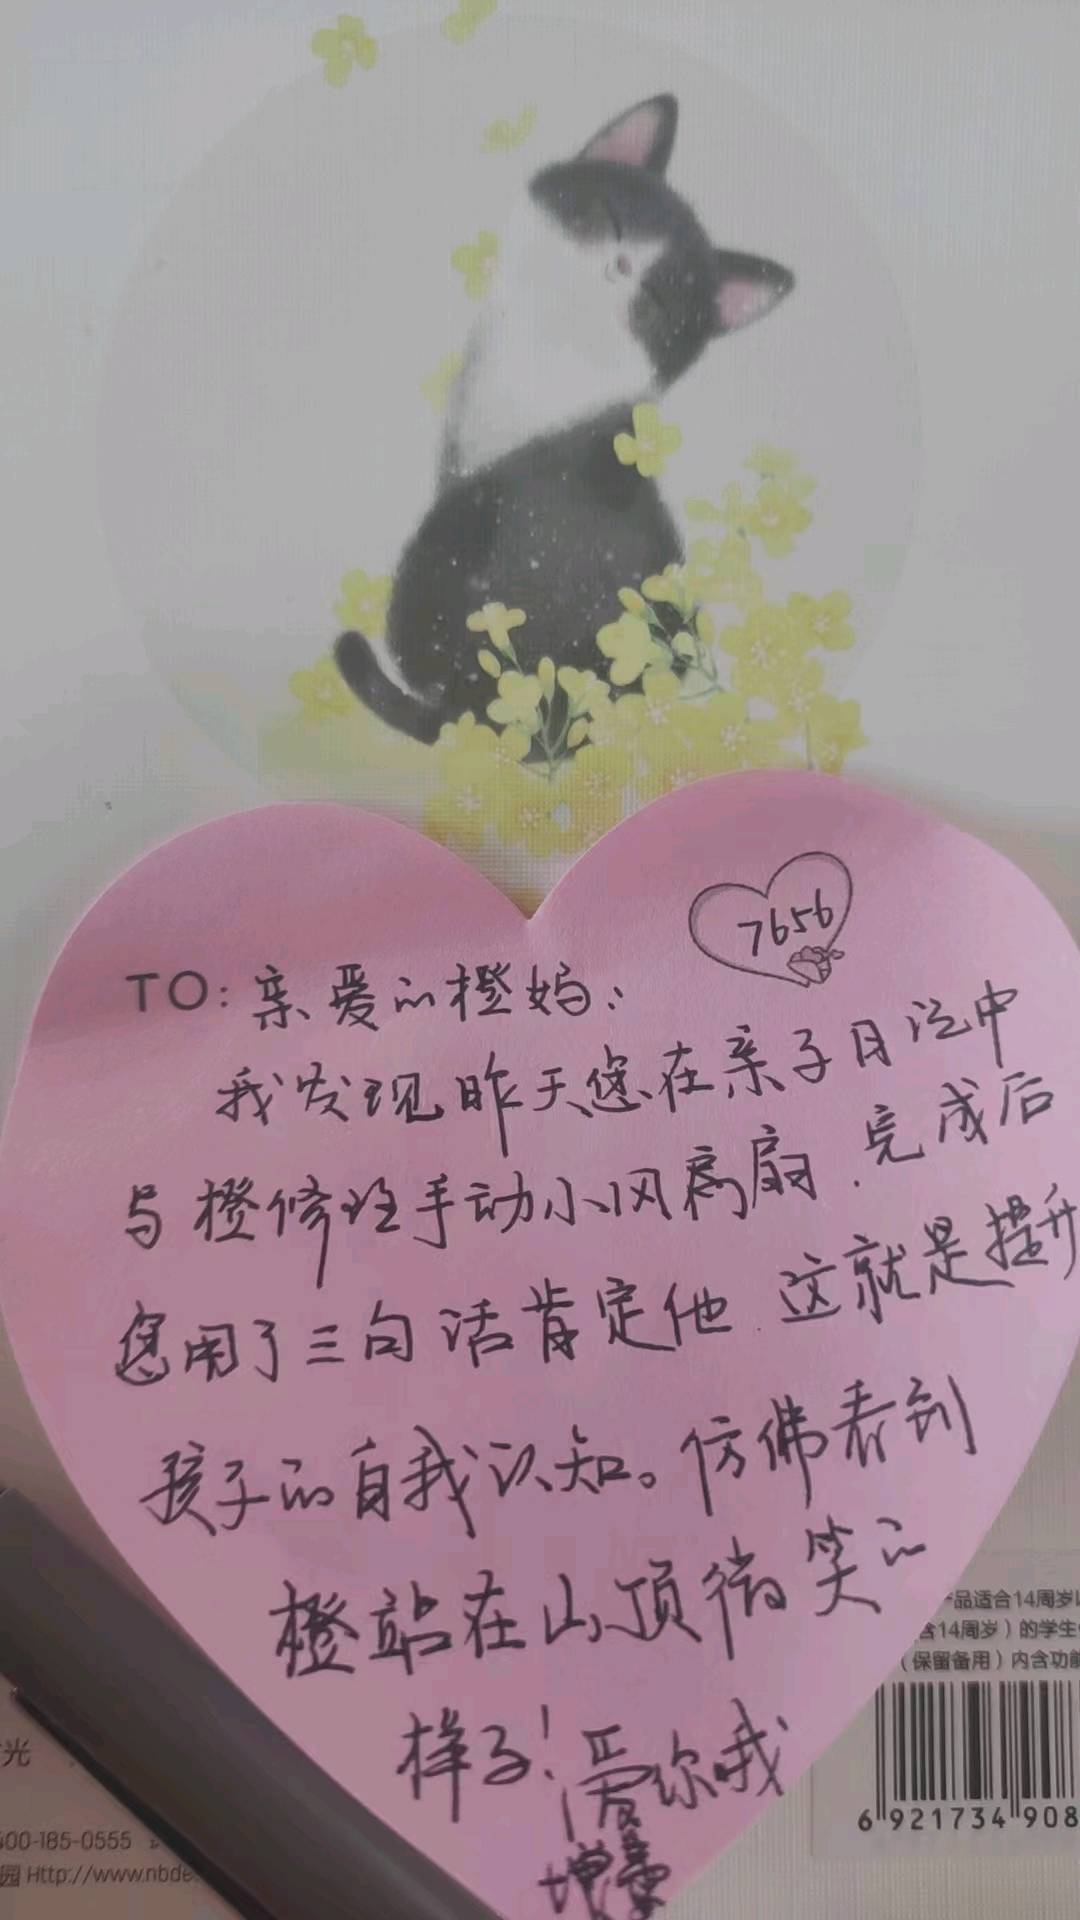 7656
TO: 亲爱的橙妈:
我发现昨天您在亲子日记中
与橙修理手动小风扇，完成后
您用了三句话肯定他.这就是提升
孩子的自我认知。仿佛看到
橙站在山顶微笑的
样子！爱你哦
品适合14周岁以
含14周岁）的学生
（保留备用）内含功能
光
6 921734 908
400-185-0555
园 Http://www.nbde